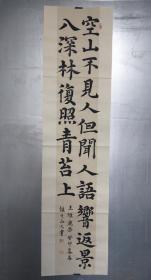 空山不見人但聞人語響返景
入深林復照青苔上
王維